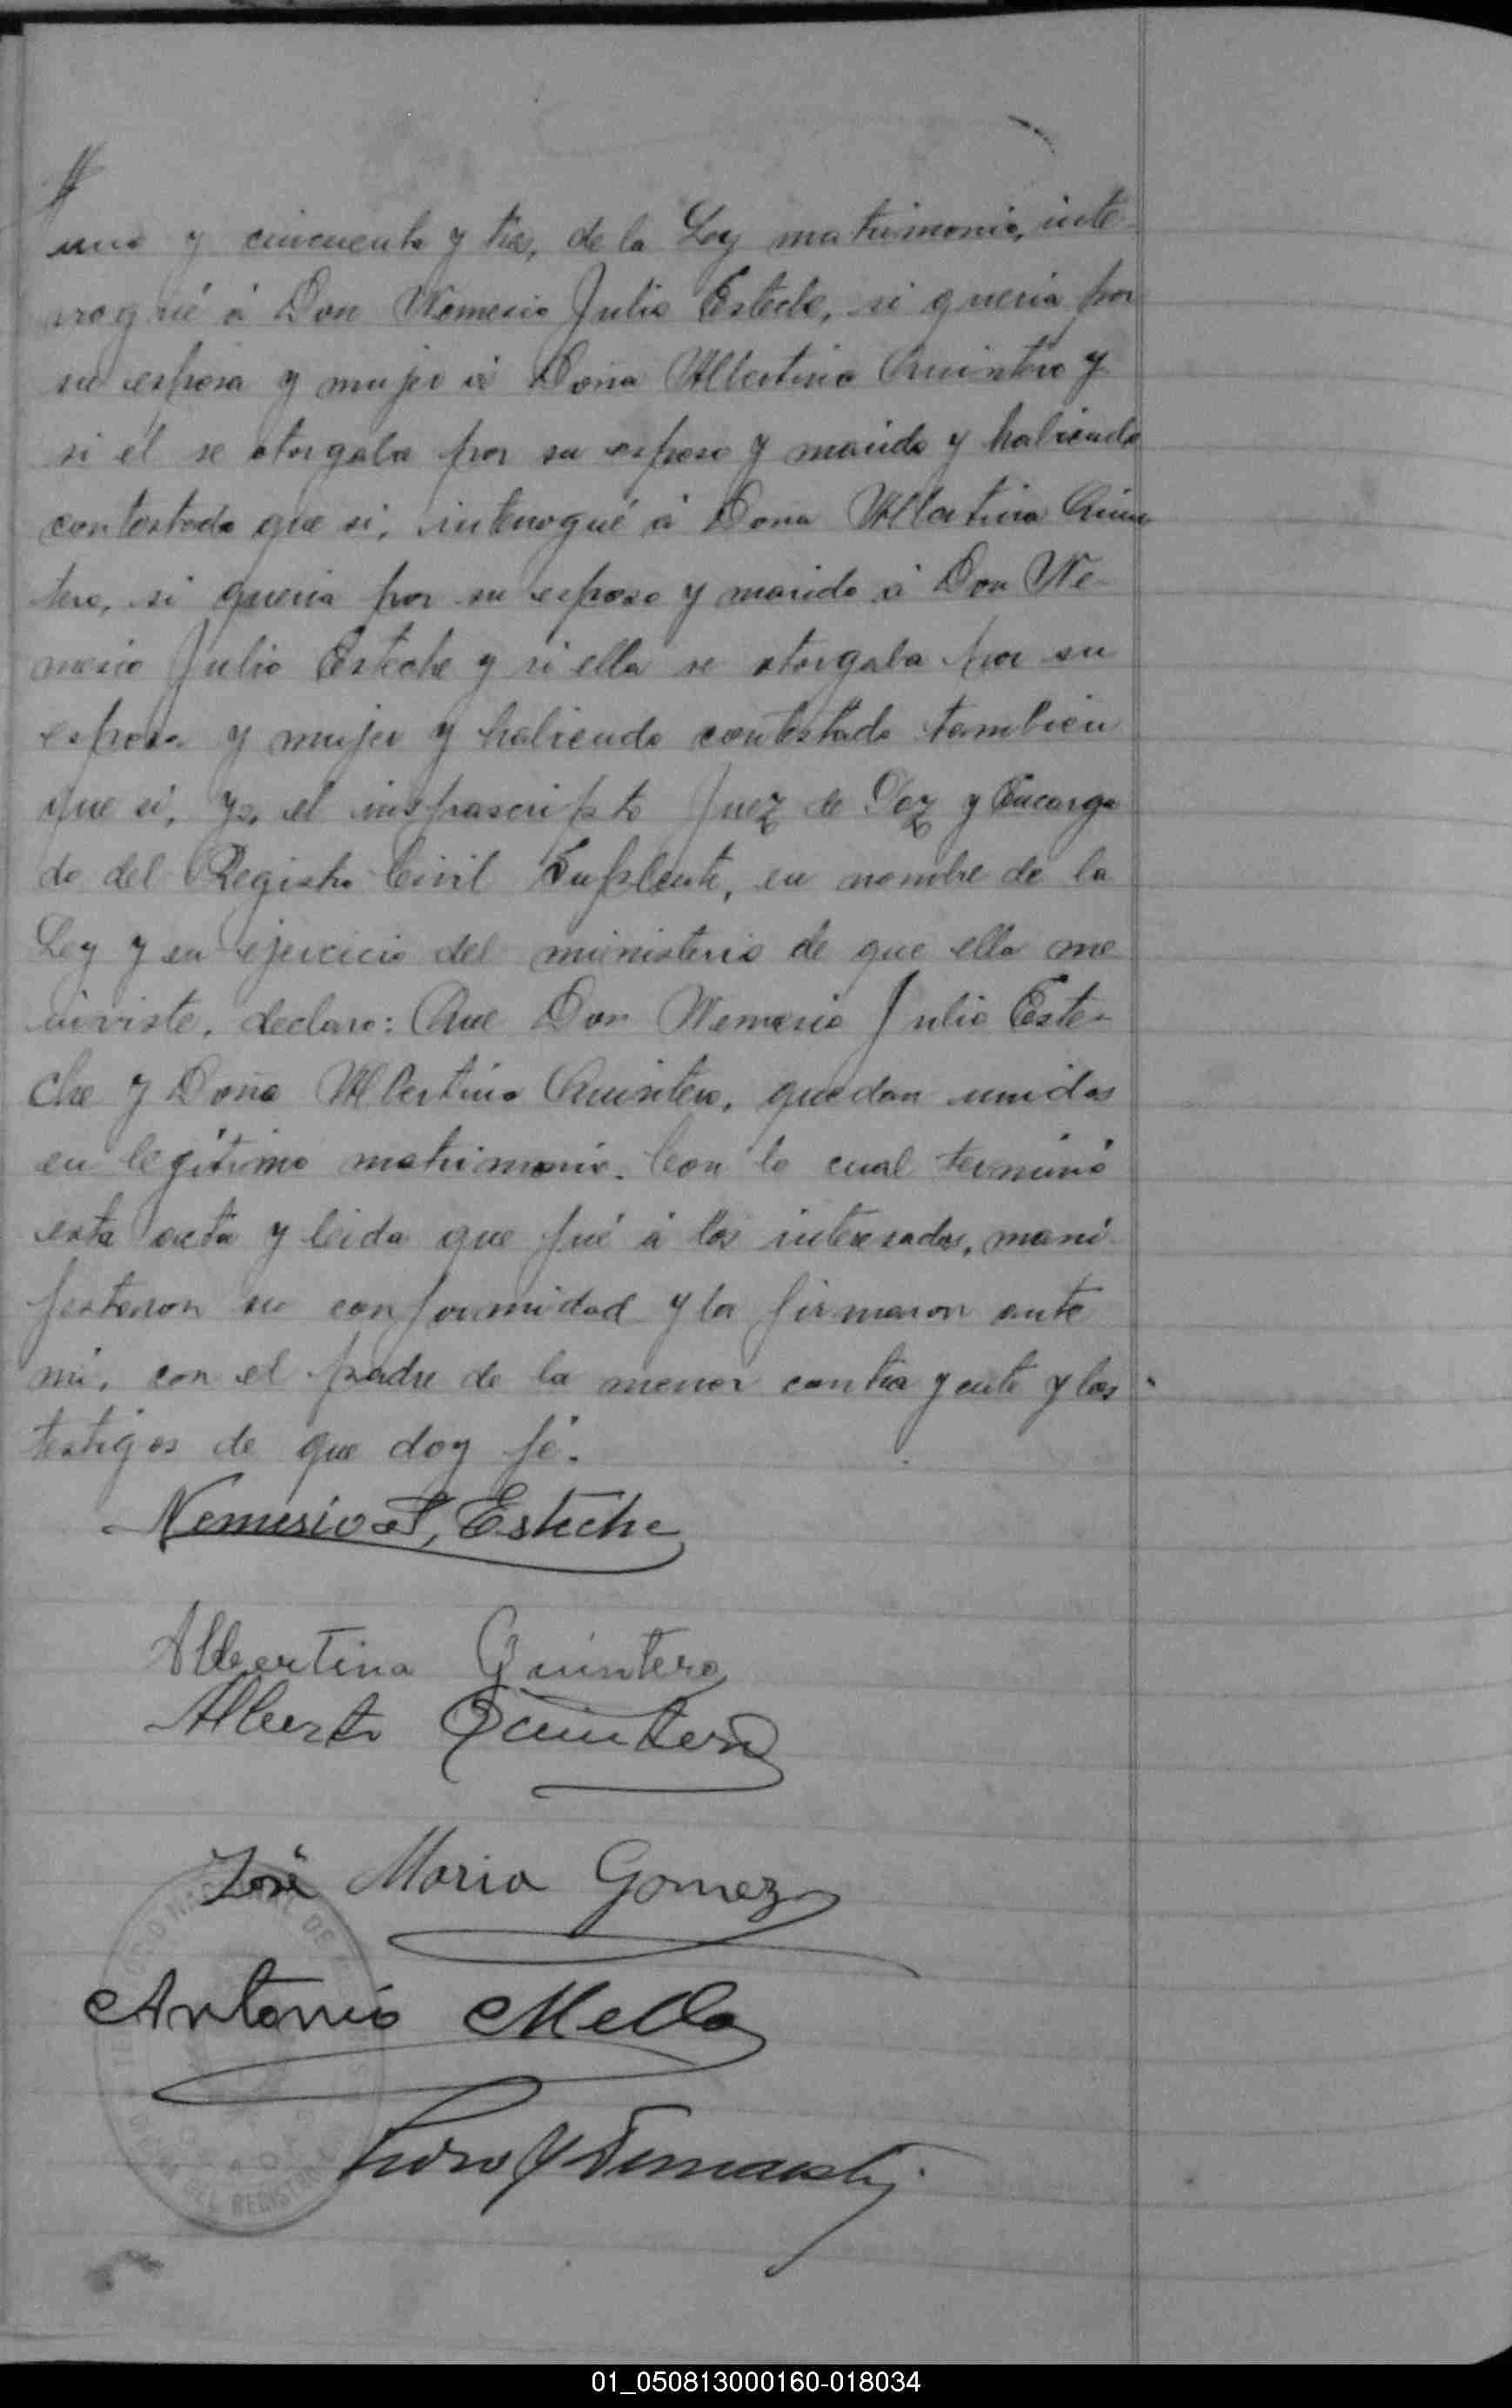 uno y cincuenta y tres, de la Ley matrimonio, inte-
rrogué á Don Nemesio Julio Esteche, si queria por
su esposa y mujer á Doña Albertina Quintero y
si él se otorgaba por su esposo y marido y habiendo
contestado que si, interrogué á Dona Albertina Quin
tero, si queria por su esposo y marido á Don Ne-
mesio Julio Esteche y si ella se otorgaba por su
esposa y mujer y habiendo contestado tambien
que si, yo, el infrascripto Juez de Paz y Encarga
do del Registro Civil Suplente, en nombre de la
Ley y en ejercicio del ministerio de que ella me
inviste, declaro: Que Don Nemesio Julio Este-
che y Doña Albertina Quintero, quedan unidos
en legítimo matrimonio. Con lo cual terminó
esta acta y leida que fué á los interesados, mani-
festaron su conformidad y la firmaron ante
mi, con el padre de la menor contrayente y los
testigos de que doy fé.
Nemesio J, Esteche
Albertina Quintero
Alberto Quintero
José Maria Gomez
Antonio Mella
Pedro
DEL REGISTRO
01_050813000160-018034